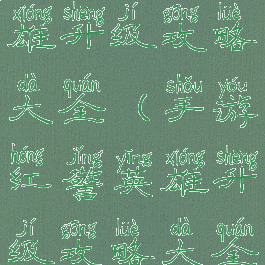 xióng shēng jí gōng lüè
雄升级攻略
dà quán shǒu yóu
大全(手游
hóng jǐng yīng xióng shēng
红警英雄升
jí gōng lüè dà quán
级攻略大全